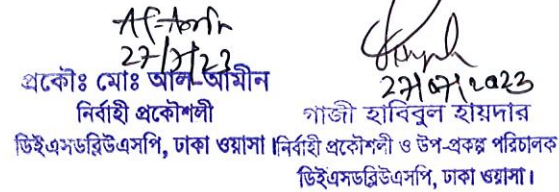 27/7/23
27/07/2023
প্রকৌঃ মোঃ আল-আমীন
নির্বাহী প্রকৌশলী
ডিইএসডব্লিউএসপি, ঢাকা ওয়াসা।
গাজী হাবিবুল হায়দার
নির্বাহী প্রকৌশলী ও উপ-প্রকল্প পরিচালক
ডিইএসডব্লিউএসপি, ঢাকা ওয়াসা।